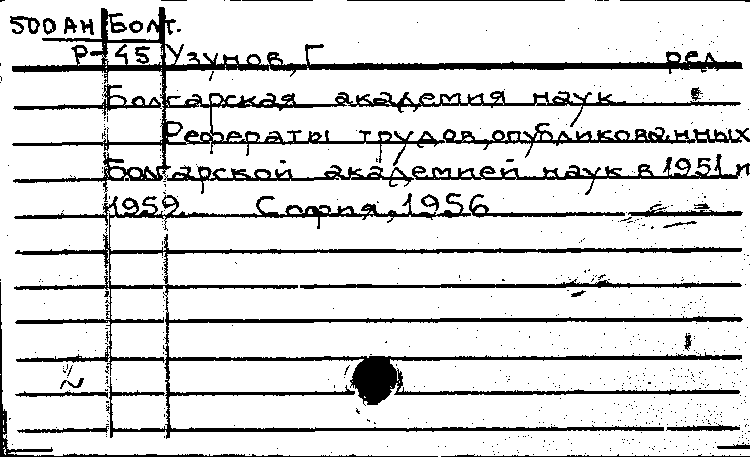 500 АН Болг.
Р-45 Узунов, Г ред
Болгарская академия наук
Рефераты трудов, опубликованных
Болгарской академией наук в 1951 и
1952. София, 1956